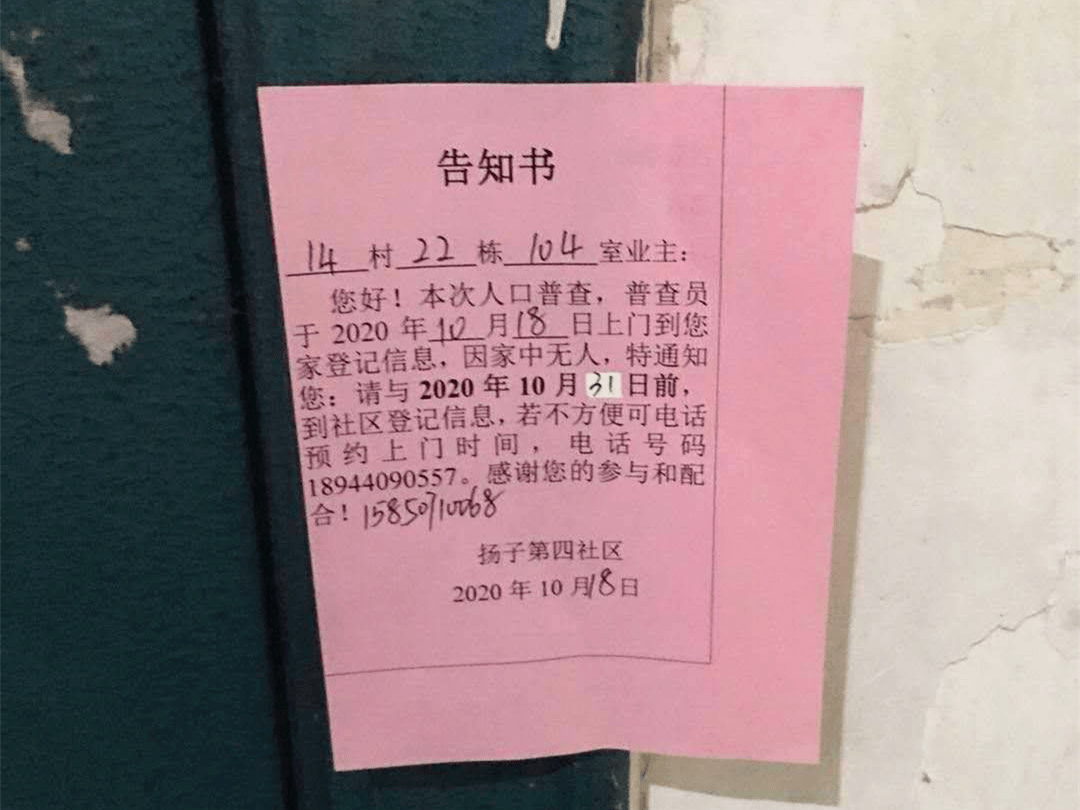 告知书
14村22栋104室业主：
您好！本次人口普查，普查员
于 2020 年10月18日上门到您
家登记信息，因家中无人，特通知
您：请与 2020 年 10 月31日前，
到社区登记信息，若不方便可电话
预约上门时间，电话号码
18944090557。感谢您的参与和配
合！15850710068
扬子第四社区
2020 年 10 月18日